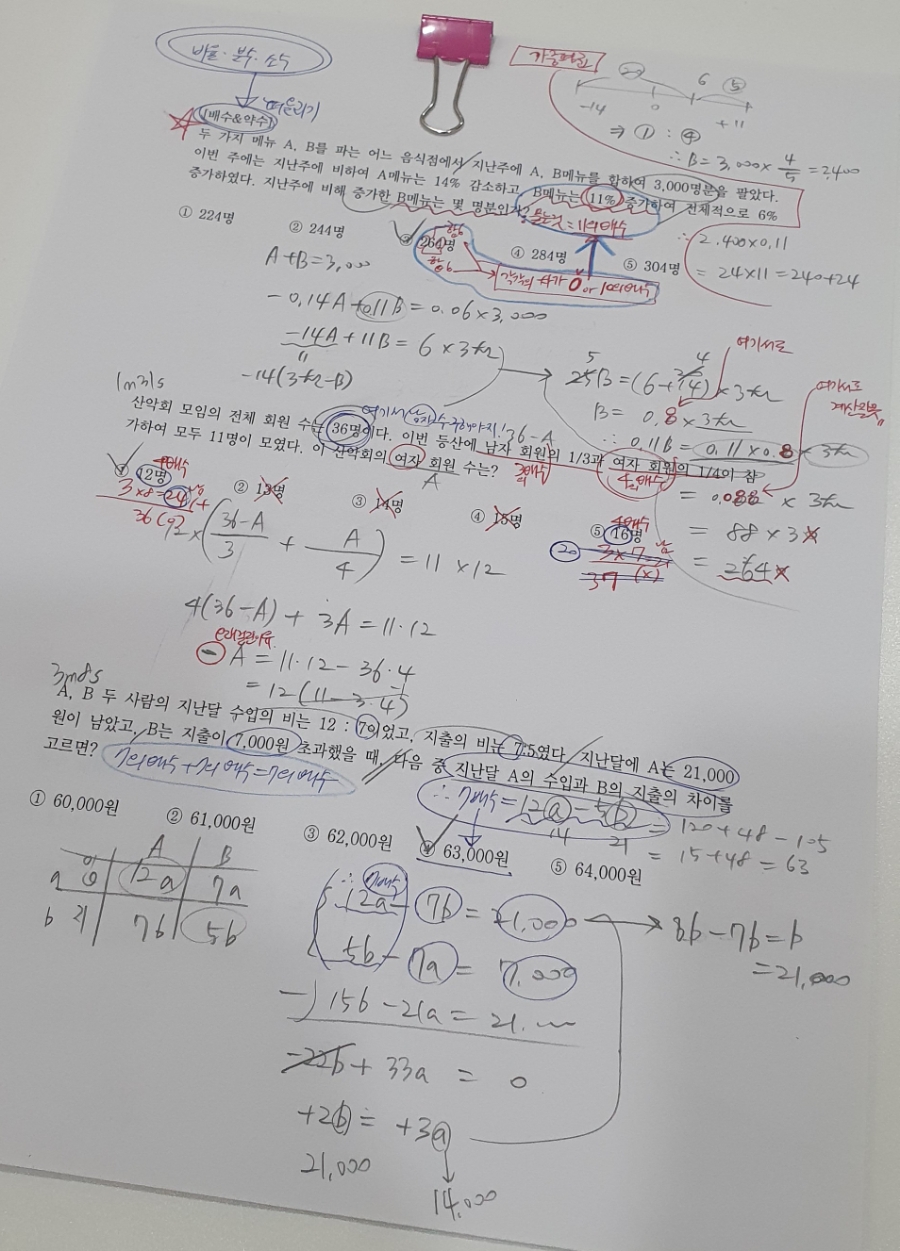 비율·분수·소수
떠올리기
[배수&약수]
가중평균
20 6 ⑤
-14 0 +11
⇒ ① : ④
∴ B = 3,000 × 4/5 = 2,400
두 가지 메뉴 A, B를 파는 어느 음식점에서 지난주에 A, B메뉴를 합하여 3,000명분을 팔았다.
이번 주에는 지난주에 비하여 A메뉴는 14% 감소하고, B메뉴는 11% 증가하여 전체적으로 6%
증가하였다. 지난주에 비해 증가한 B메뉴는 몇 명분인가?
= 11의 배수
① 224명
② 244명
③ 264명
④ 284명
⑤ 304명
합6
합6
각각의 차가 0 or 11의 배수
∴ 2.400×0.11
= 24×11 = 240+24
A+B = 3,000
- 0.14A + 0.11B = 0.06×3,000
-14A + 11B = 6 × 3천
-14(3천-B)
25B = (6+14) × 3천
5 4
B = 0.8 × 3천
∴ 0.11B = 0.11 × 0.8 × 3천
= 0.088 × 3천
= 88 × 3
= 264
여기서로
여기서로
1m31s
산악회 모임의 전체 회원 수는 36명이다. 이번 등산에 남자 회원의 1/3과 여자 회원의 1/4이 참
가하여 모두 11명이 모였다. 이 산악회의 여자 회원 수는?
36-A
A
3의 배수
4의 배수
① 12명
② 13명
③ 14명
④ 15명
⑤ 16명
4배수
3×8=24
36 (O)
4배수
20
3×7
37 (x)
12 × ( (36-A)/3 + A/4 ) = 11 × 12
4(36-A) + 3A = 11·12
- A = 11·12 - 36·4
= 12(11-3·4)
3m8s
A, B 두 사람의 지난달 수입의 비는 12 : 7이었고, 지출의 비는 7:5였다. 지난달에 A는 21,000
원이 남았고, B는 지출이 7,000원 초과했을 때, 다음 중 지난달 A의 수입과 B의 지출의 차이를
고르면?
7의 배수+7의 배수=7의 배수
∴ 7배수 = 12a - 5b = 120+48-105
14 21
= 15+48 = 63
① 60,000원
② 61,000원
③ 62,000원
④ 63,000원
⑤ 64,000원
A B
a 수 12a 7a
b 지 7b 5b
∴ 7배수
12a - 7b = 21,000
8b-7b = b
= 21,000
5b - 7a = 7,000
-) 15b - 21a = 21.
-22b + 33a = 0
+2b = +3a
21,000
14,000